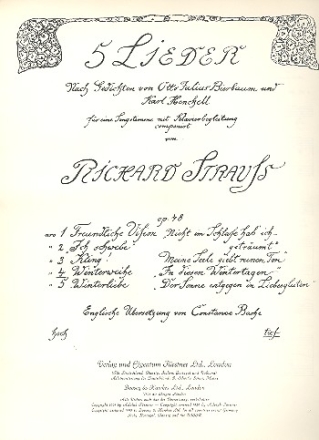 5 LIEDER
Nach Gedichten von Otto Julius Bierbaum und
Karl Henckell
für eine Singstimme mit Klavierbegleitung
componirt
von
RICHARD STRAUSS
op. 48
nro 1 Freundliche Vision "Nicht im Schlafe hab ich
geträumt"
" 2 "Ich schwebe"
" 3 Kling! "Meine Seele giebt reinen Ton"
" 4 Winterweihe "In diesen Wintertagen"
" 5 Winterliebe "Der Sonne entgegen in Liebesgluten"
Englische Übersetzung von Constance Bache
hoch tief
Verlag und Eigentum Fürstner Ltd., London